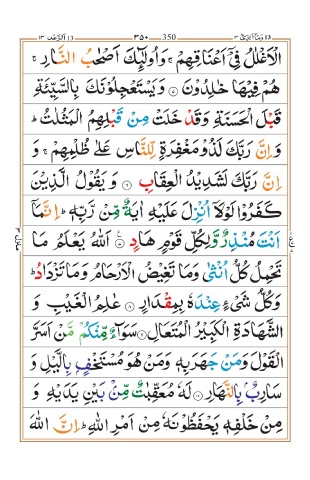 ١٣ الرَّعْد ١٣ ٣٥٠ 350 وَمَآ اُبَرِّئُ ١٣
الْاَغْلٰلُ فِیْۤ اَعْنَاقِهِمْ ۚ وَ اُولٰٓىِٕكَ اَصْحٰبُ النَّارِ ۚ
هُمْ فِیْهَا خٰلِدُوْنَ ۝۵ وَ یَسْتَعْجِلُوْنَكَ بِالسَّیِّئَةِ
قَبْلَ الْحَسَنَةِ وَ قَدْ خَلَتْ مِنْ قَبْلِهِمُ الْمَثُلٰتُ ؕ
وَ اِنَّ رَبَّكَ لَذُوْ مَغْفِرَةٍ لِّلنَّاسِ عَلٰی ظُلْمِهِمْ ۚ وَ
اِنَّ رَبَّكَ لَشَدِیْدُ الْعِقَابِ ۝۶ وَ یَقُوْلُ الَّذِیْنَ
كَفَرُوْا لَوْلَاۤ اُنْزِلَ عَلَیْهِ اٰیَةٌ مِّنْ رَّبِّهٖ ؕ اِنَّمَاۤ
اَنْتَ مُنْذِرٌ وَّ لِكُلِّ قَوْمٍ هَادٍ ۝۷ اَللّٰهُ یَعْلَمُ مَا
تَحْمِلُ كُلُّ اُنْثٰی وَ مَا تَغِیْضُ الْاَرْحَامُ وَ مَا تَزْدَادُ ؕ
وَ كُلُّ شَیْءٍ عِنْدَهٗ بِمِقْدَارٍ ۝۸ عٰلِمُ الْغَیْبِ وَ
الشَّهَادَةِ الْكَبِیْرُ الْمُتَعَالِ ۝۹ سَوَآءٌ مِّنْكُمْ مَّنْ اَسَرَّ
الْقَوْلَ وَ مَنْ جَهَرَ بِهٖ وَ مَنْ هُوَ مُسْتَخْفٍۭ بِالَّیْلِ وَ
سَارِبٌۢ بِالنَّهَارِ ۝۱۰ لَهٗ مُعَقِّبٰتٌ مِّنْۢ بَیْنِ یَدَیْهِ وَ
مِنْ خَلْفِهٖ یَحْفَظُوْنَهٗ مِنْ اَمْرِ اللّٰهِ ؕ اِنَّ اللّٰهَ